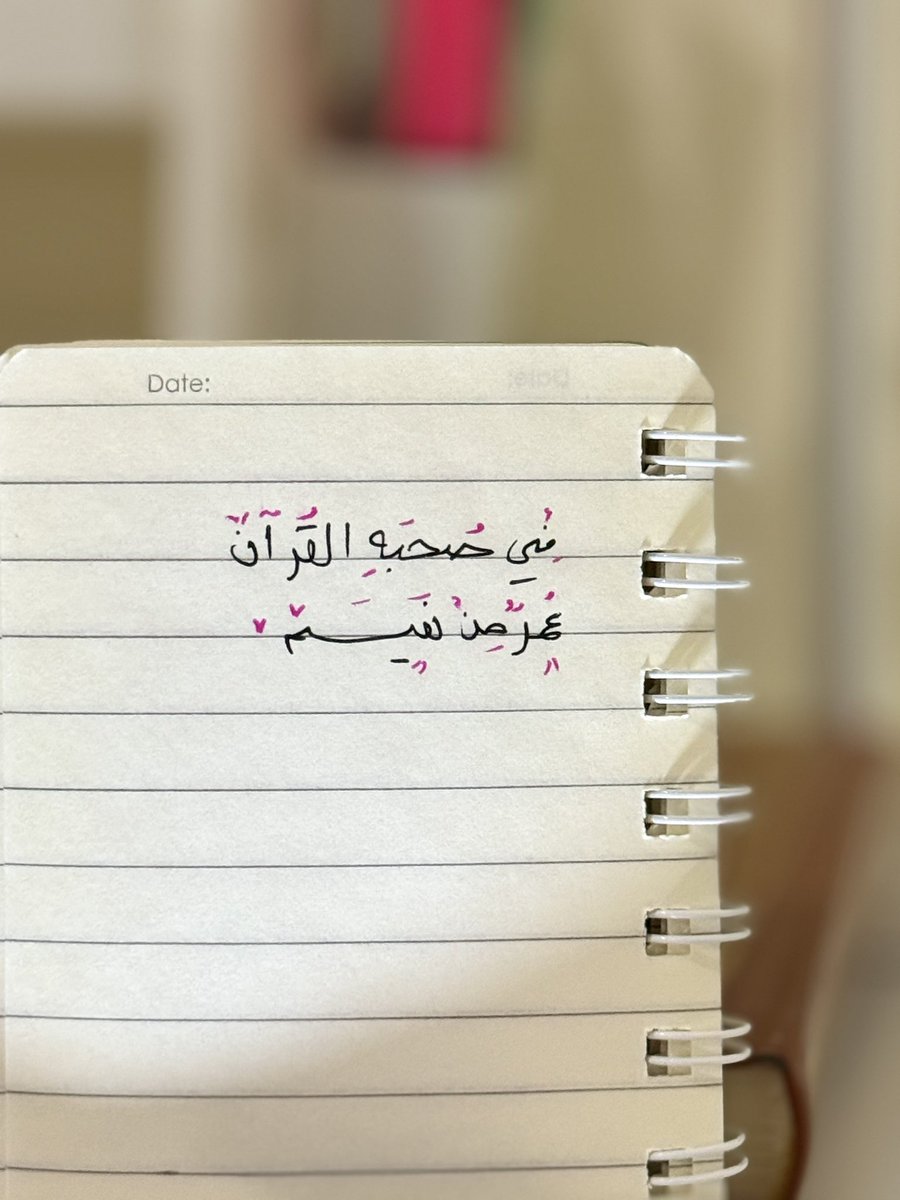 Date:
فِي صُحبَةِ القُرآن
عُمرٌ مِن نَعِيم